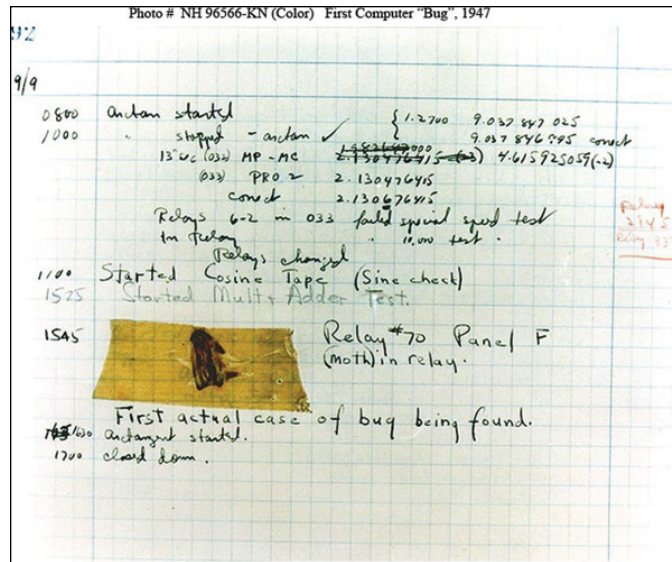 Photo # NH 96566-KN (Color) First Computer “Bug”, 1947
92
9/9
0800 arctan started { 1.2700 9.037 847 025
1000 " stopped - arctan ✓ { 9.037 846 995 correct
13"uc (032) MP - MC 2.130476415 (-3) 4.615925059(-2)
(033) PRO 2 2.130476415
correct 2.130676415
Relays 6-2 in 033 failed special speed test
in Relay " 10,000 test .
Relay
2145
Relay 33
Relays changed
1100 Started Cosine Tape (Sine check)
1525 Started Mult + Adder Test.
1545 Relay #70 Panel F
(moth) in relay.
First actual case of bug being found.
1630 arctangent started.
1700 closed down.